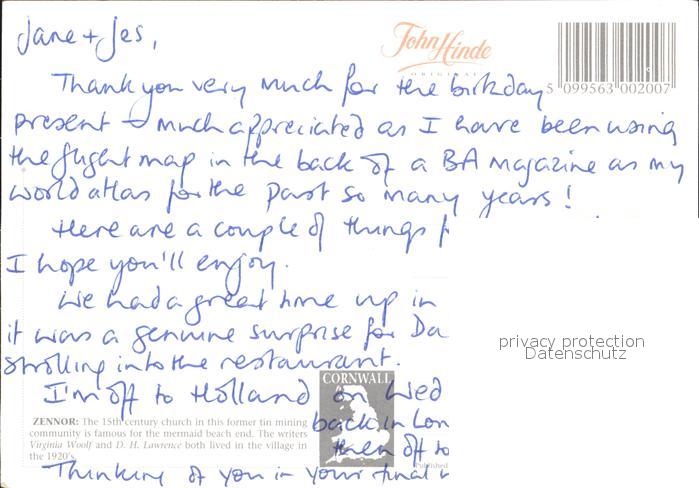 Jane + Jes,
John Hinde
ORIGINAL
5 099563 002007
Thank you very much for the birthday
present - much appreciated as I have been using
the flight map in the back of a BA magazine as my
world atlas for the past so many years!
Here are a couple of things f
I hope you'll enjoy.
We had a great time up in
it was a genuine surprise for Da
strolling into the restaurant.
privacy protection
Datenschutz
I'm off to Holland on Wed
back in Lon
then off to
Thinking of you in your final
CORNWALL
ZENNOR: The 15th century church in this former tin mining
community is famous for the mermaid beach end. The writers
Virginia Woolf and D. H. Lawrence both lived in the village in
the 1920's.
Published